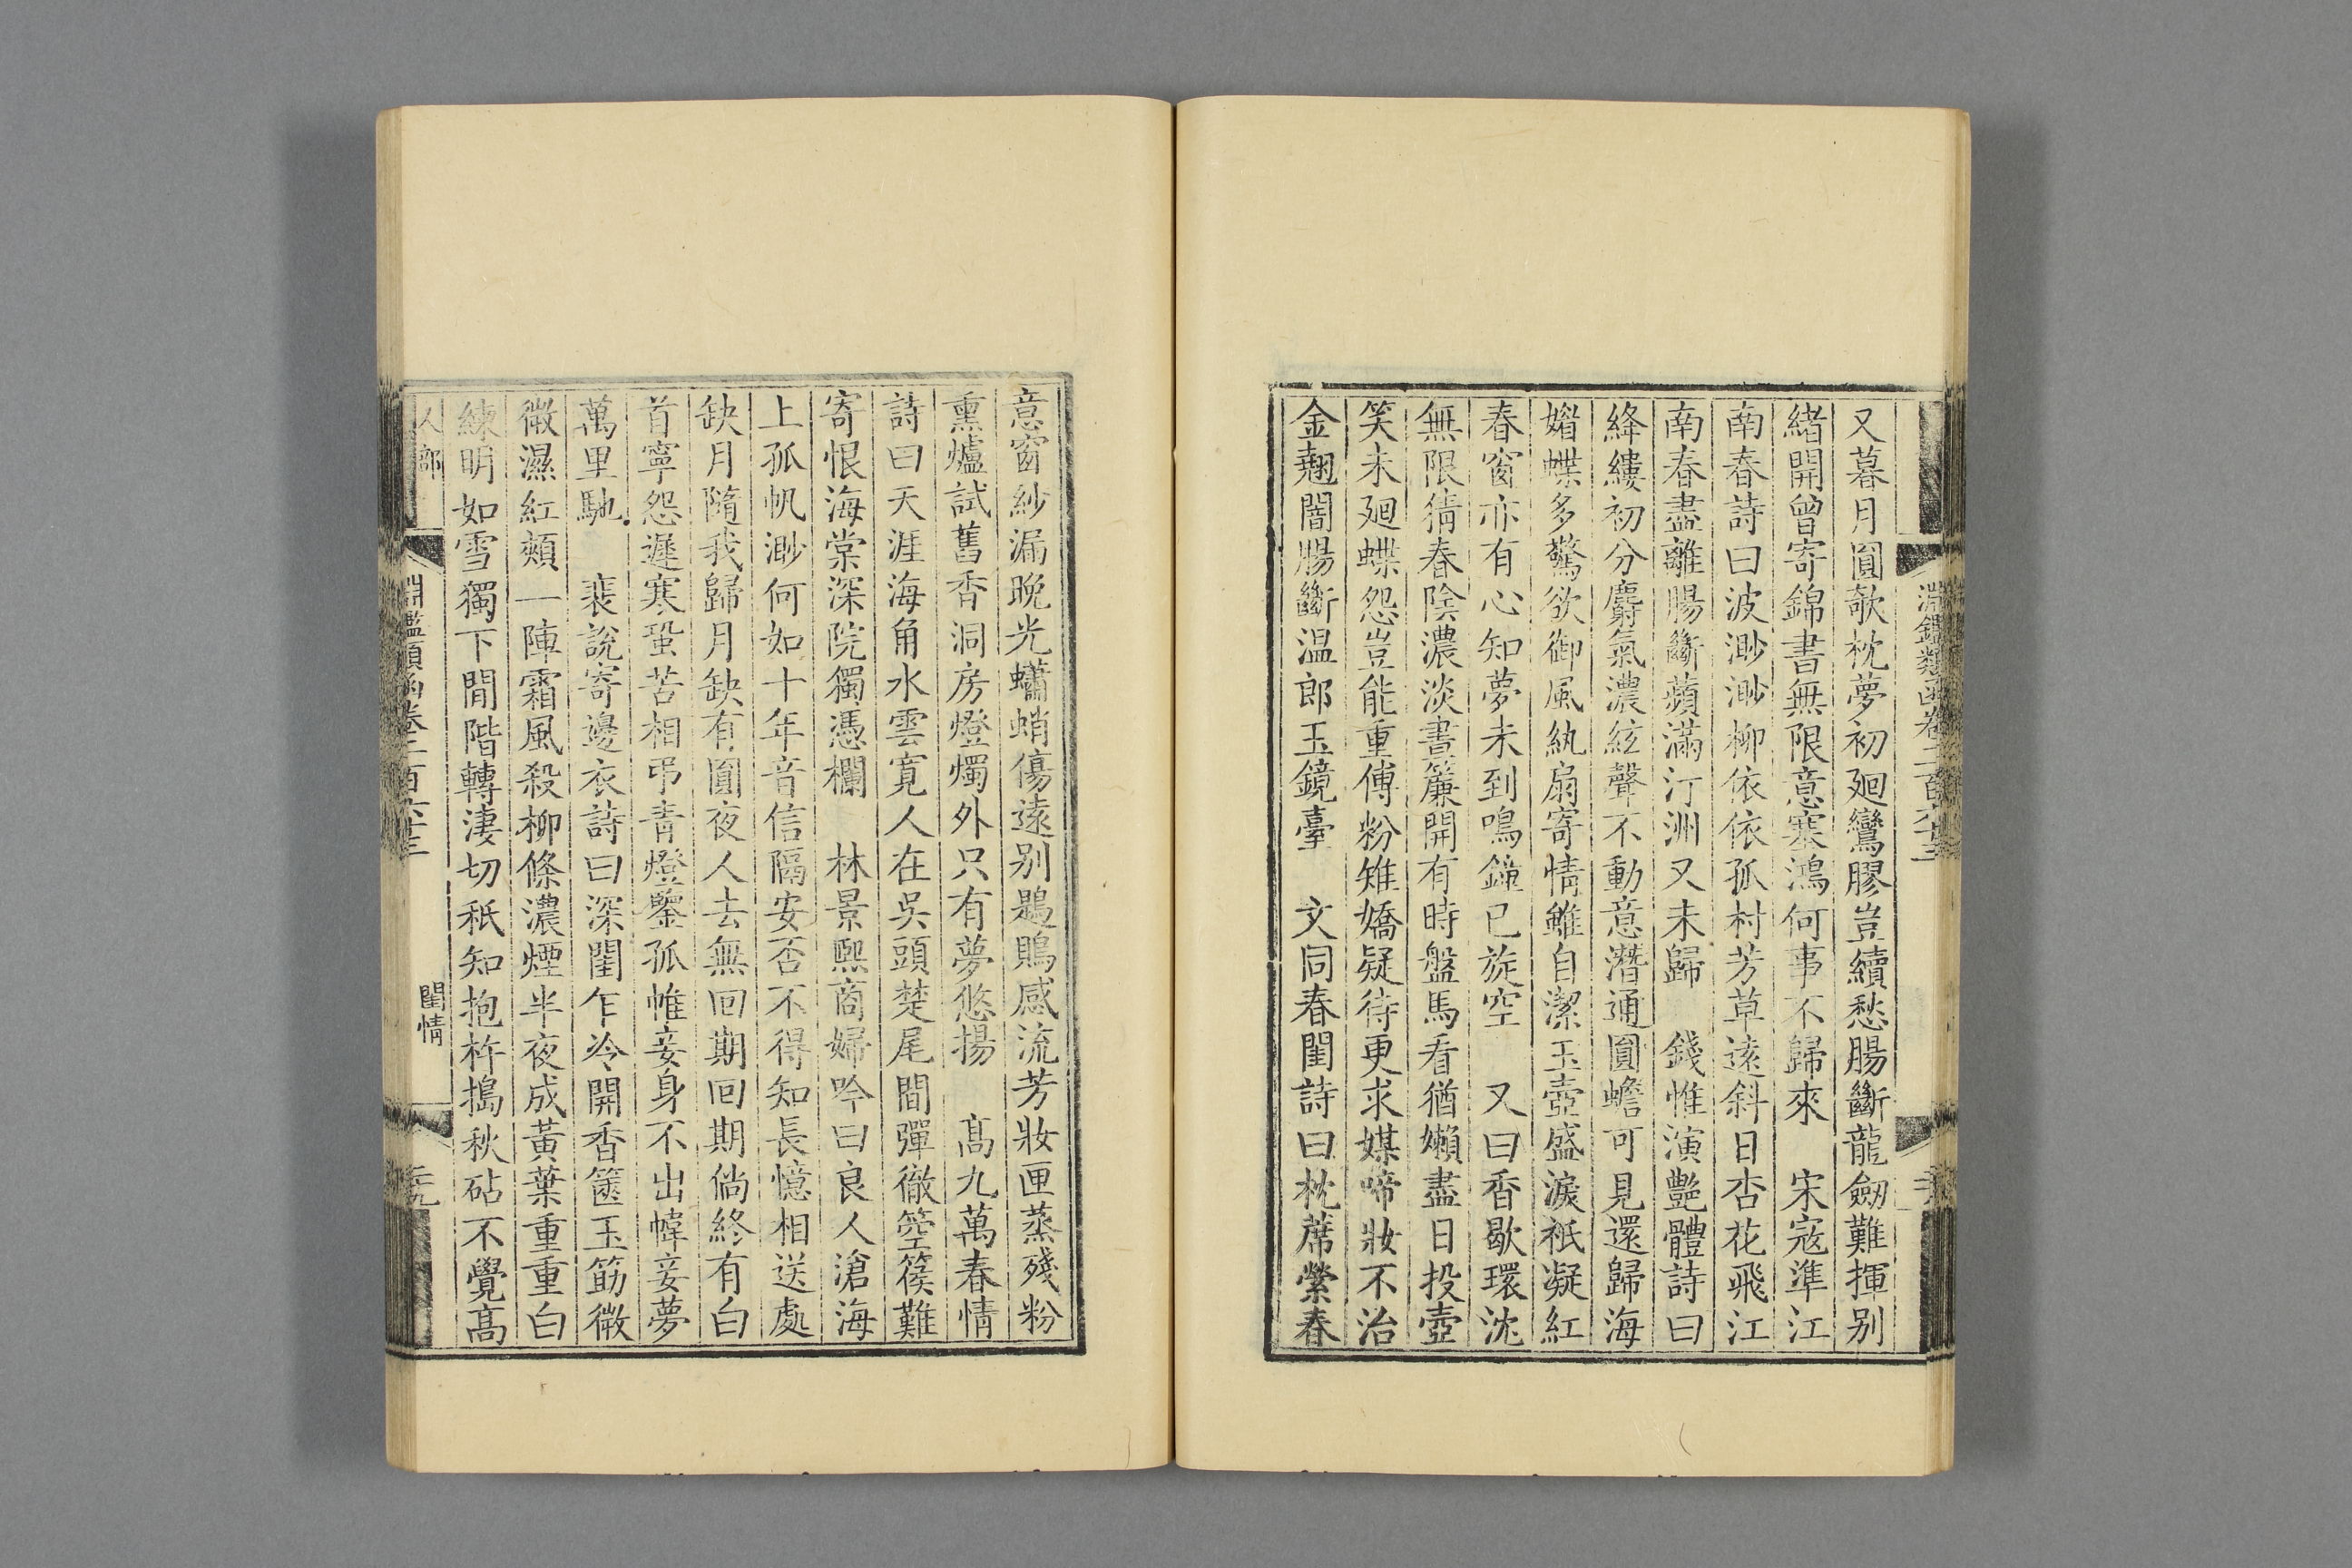 淵鑑類函卷二百六十三
又暮月圓欹枕夢初廻鸞膠豈續愁腸斷龍劒難揮别
緒開曾寄錦書無限意塞鴻何事不歸來　宋寇準江
南春詩曰波渺渺柳依依孤村芳草遠斜日杏花飛江
南春盡離腸斷蘋滿汀洲又未歸　錢惟演艷體詩曰
絳縷初分麝氣濃絃聲不動意潛通圓蟾可見還歸海
媚蝶多驚欲御風紈扇寄情雖自潔玉壺盛淚祇凝紅
春窗亦有心知夢未到鳴鐘已旋空　又曰香歇環沈
無限猜春陰濃淡晝簾開有時盤馬看猶嬾盡日投壺
笑未廻蝶怨豈能重傅粉雉嬌疑待更求媒啼妝不治
金翹闇腸斷温郎玉鏡臺　文同春閨詩曰枕蓆縈春
意窗紗漏晚光蠨蛸傷遠别鶗鴂感流芳妝匣蒸殘粉
熏爐試舊香洞房燈燭外只有夢悠揚　高九萬春情
詩曰天涯海角水雲寬人在吳頭楚尾間彈徹箜篌難
寄恨海棠深院獨憑欄　林景熙商婦吟曰良人滄海
上孤帆渺何如十年音信隔安否不得知長憶相送處
缺月隨我歸月缺有圓夜人去無回期回期倘終有白
首寧怨遲寒蛩苦相弔青燈鑒孤帷妾身不出幃妾夢
萬里馳　裴說寄邊衣詩曰深閨乍冷開香篋玉筯微
微濕紅頰一陣霜風殺柳條濃煙半夜成黃葉重重白
練明如雪獨下閒階轉淒切秖知抱杵搗秋砧不覺高
人部　淵鑑類函卷二百六十三　閨情　二十九